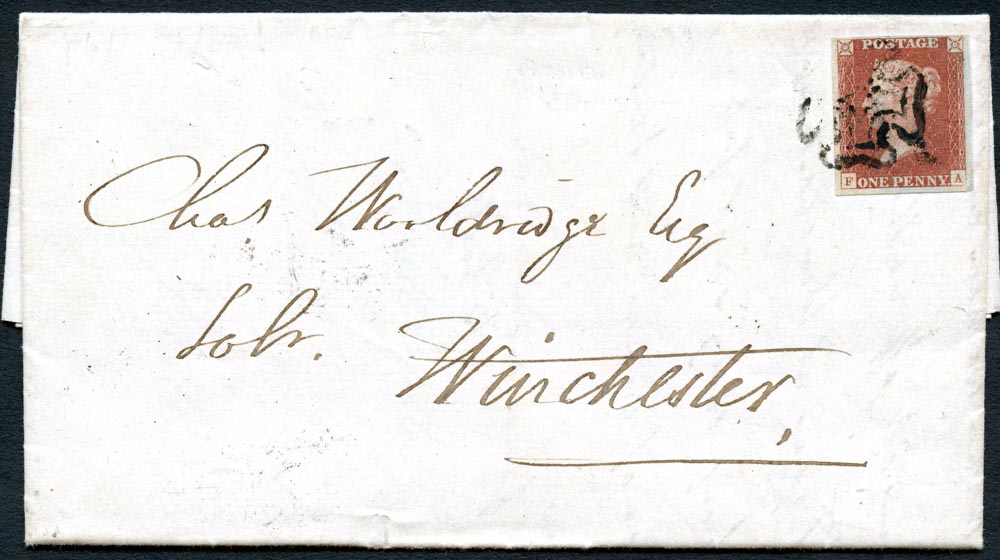 POSTAGE
F ONE PENNY A
Chas Wooldridge Esq
Solr.
Winchester.